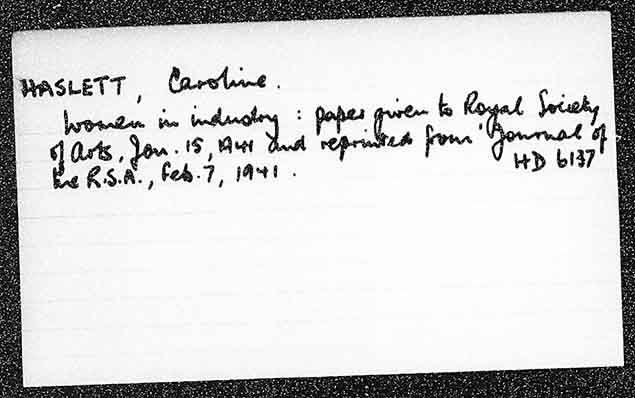 HASLETT, Caroline.
Women in industry : paper given to Royal Society
of Arts, Jan. 15, 1941 and reprinted from 'Journal of
the R.S.A., Feb. 7, 1941.
HD 6137